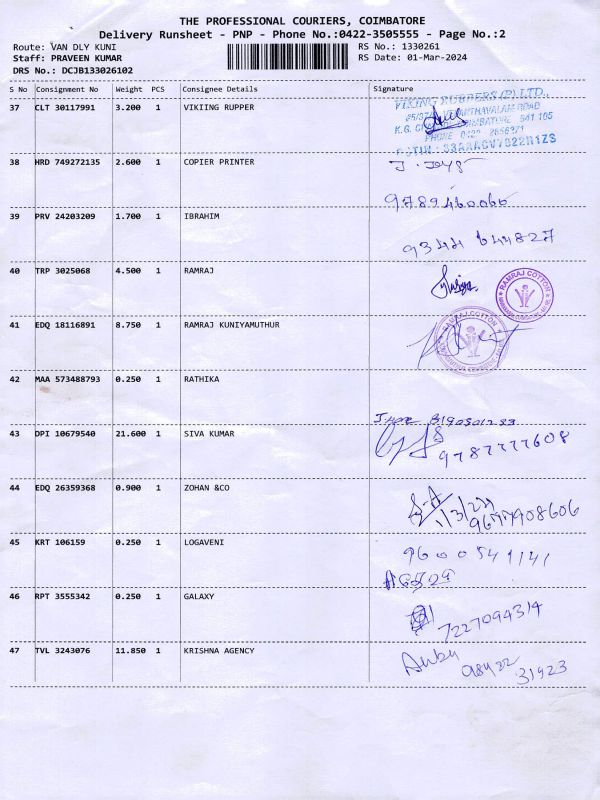 THE PROFESSIONAL COURIERS, COIMBATORE
Delivery Runsheet - PNP - Phone No.:0422-3505555 - Page No.:2
Route: VAN DLY KUNI RS No.: 1330261
Staff: PRAVEEN KUMAR RS Date: 01-Mar-2024
DRS No.: DCJB133026102
S No Consignment No Weight PCS Consignee Details Signature
37 CLT 30117991 3.200 1 VIKIING RUPPER
VIKING RUBBERS (P) LTD.,
COIMBATORE 641 105
PHONE 0422
38 HRD 749272135 2.600 1 COPIER PRINTER
9789460060
39 PRV 24203209 1.700 1 IBRAHIM
9344 644827
40 TRP 3025068 4.500 1 RAMRAJ
RAMRAJ COTTON
41 EDQ 18116891 8.750 1 RAMRAJ KUNIYAMUTHUR
RAMRAJ COTTON
42 MAA 573488793 0.250 1 RATHIKA
43 DPI 10679540 21.600 1 SIVA KUMAR
9787777608
44 EDQ 26359368 0.900 1 ZOHAN &CO
45 KRT 106159 0.250 1 LOGAVENI
9600541141
46 RPT 3555342 0.250 1 GALAXY
7227094314
47 TVL 3243076 11.850 1 KRISHNA AGENCY
98422
31923